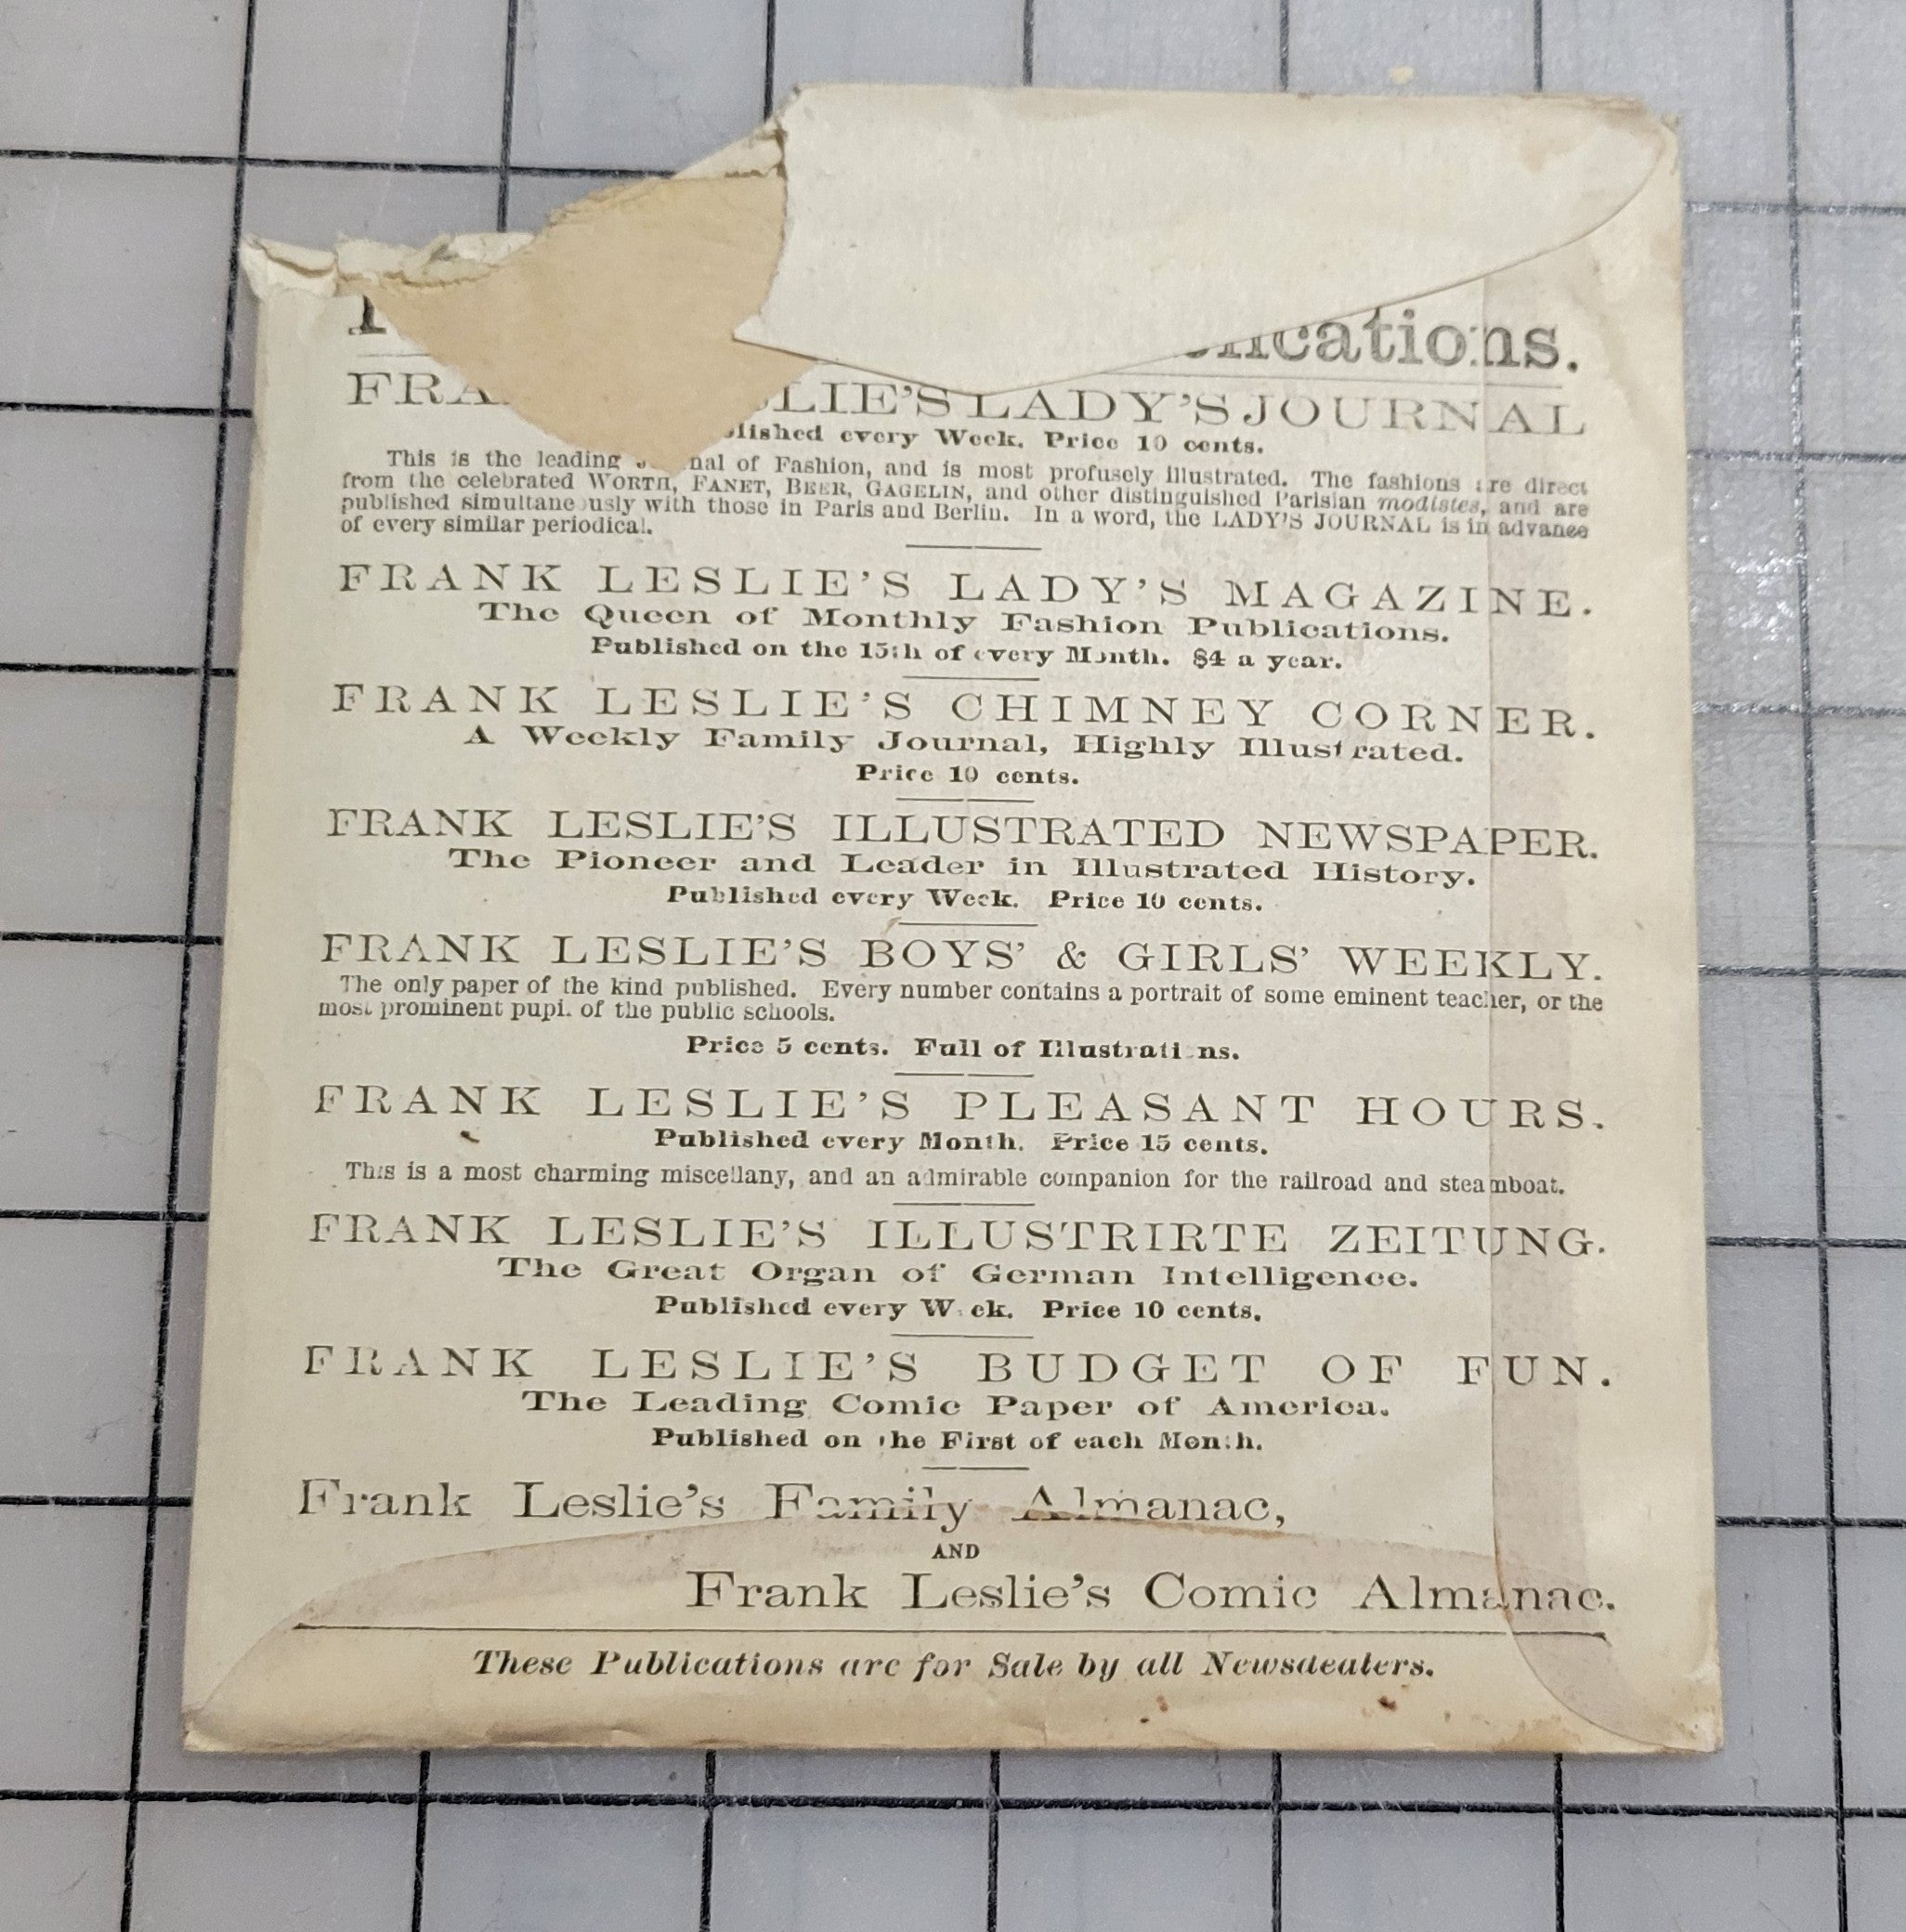 FRANK LESLIE'S LADY'S JOURNAL
every Week. Price 10 cents.
This is the leading Journal of Fashion, and is most profusely illustrated. The fashions are direct
from the celebrated WORTH, FANET, BEER, GAGELIN, and other distinguished Parisian modistes, and are
published simultaneously with those in Paris and Berlin. In a word, the LADY'S JOURNAL is in advance
of every similar periodical.
FRANK LESLIE'S LADY'S MAGAZINE.
The Queen of Monthly Fashion Publications.
Published on the 15th of every Month. $4 a year.
FRANK LESLIE'S CHIMNEY CORNER.
A Weekly Family Journal, Highly Illustrated.
Price 10 cents.
FRANK LESLIE'S ILLUSTRATED NEWSPAPER.
The Pioneer and Leader in Illustrated History.
Published every Week. Price 10 cents.
FRANK LESLIE'S BOYS' & GIRLS' WEEKLY.
The only paper of the kind published. Every number contains a portrait of some eminent teacher, or the
most prominent pupil of the public schools.
Price 5 cents. Full of Illustrations.
FRANK LESLIE'S PLEASANT HOURS.
Published every Month. Price 15 cents.
This is a most charming miscellany, and an admirable companion for the railroad and steamboat.
FRANK LESLIE'S ILLUSTRIRTE ZEITUNG.
The Great Organ of German Intelligence.
Published every Week. Price 10 cents.
FRANK LESLIE'S BUDGET OF FUN.
The Leading Comic Paper of America.
Published on the First of each Month.
Frank Leslie's Family Almanac,
AND
Frank Leslie's Comic Almanac.
These Publications are for Sale by all Newsdealers.